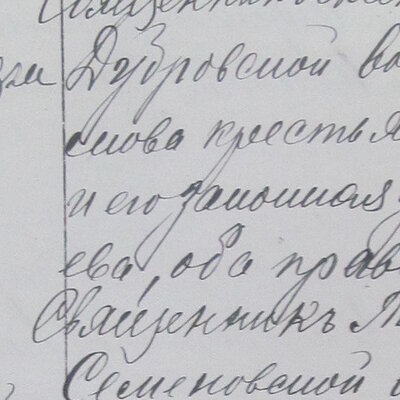 Дубровской во
снова крестья
и его законная
ева, оба прав
Священникъ
Семеновской